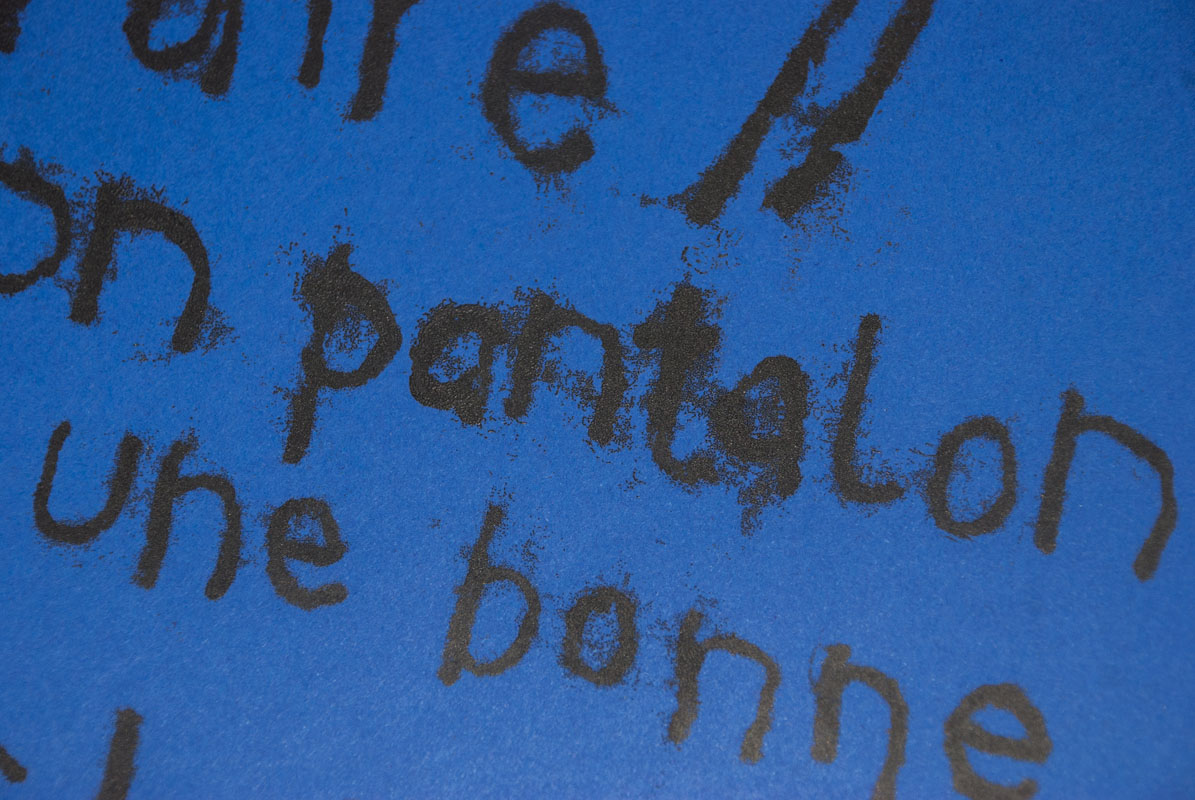 aire //
on pantalon
une bonne